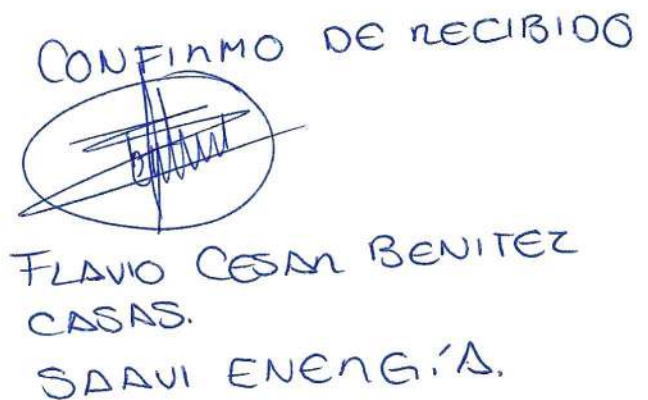 CONFIRMO DE RECIBIDO
FLAVIO CESAR BENITEZ
CASAS.
SAAVI ENERGÍA.